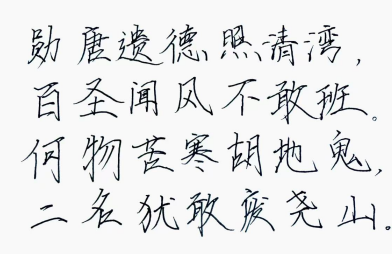 勋唐遗德照清湾，
百圣闻风不敢班。
何物苦寒胡地鬼，
二名犹敢废尧山。